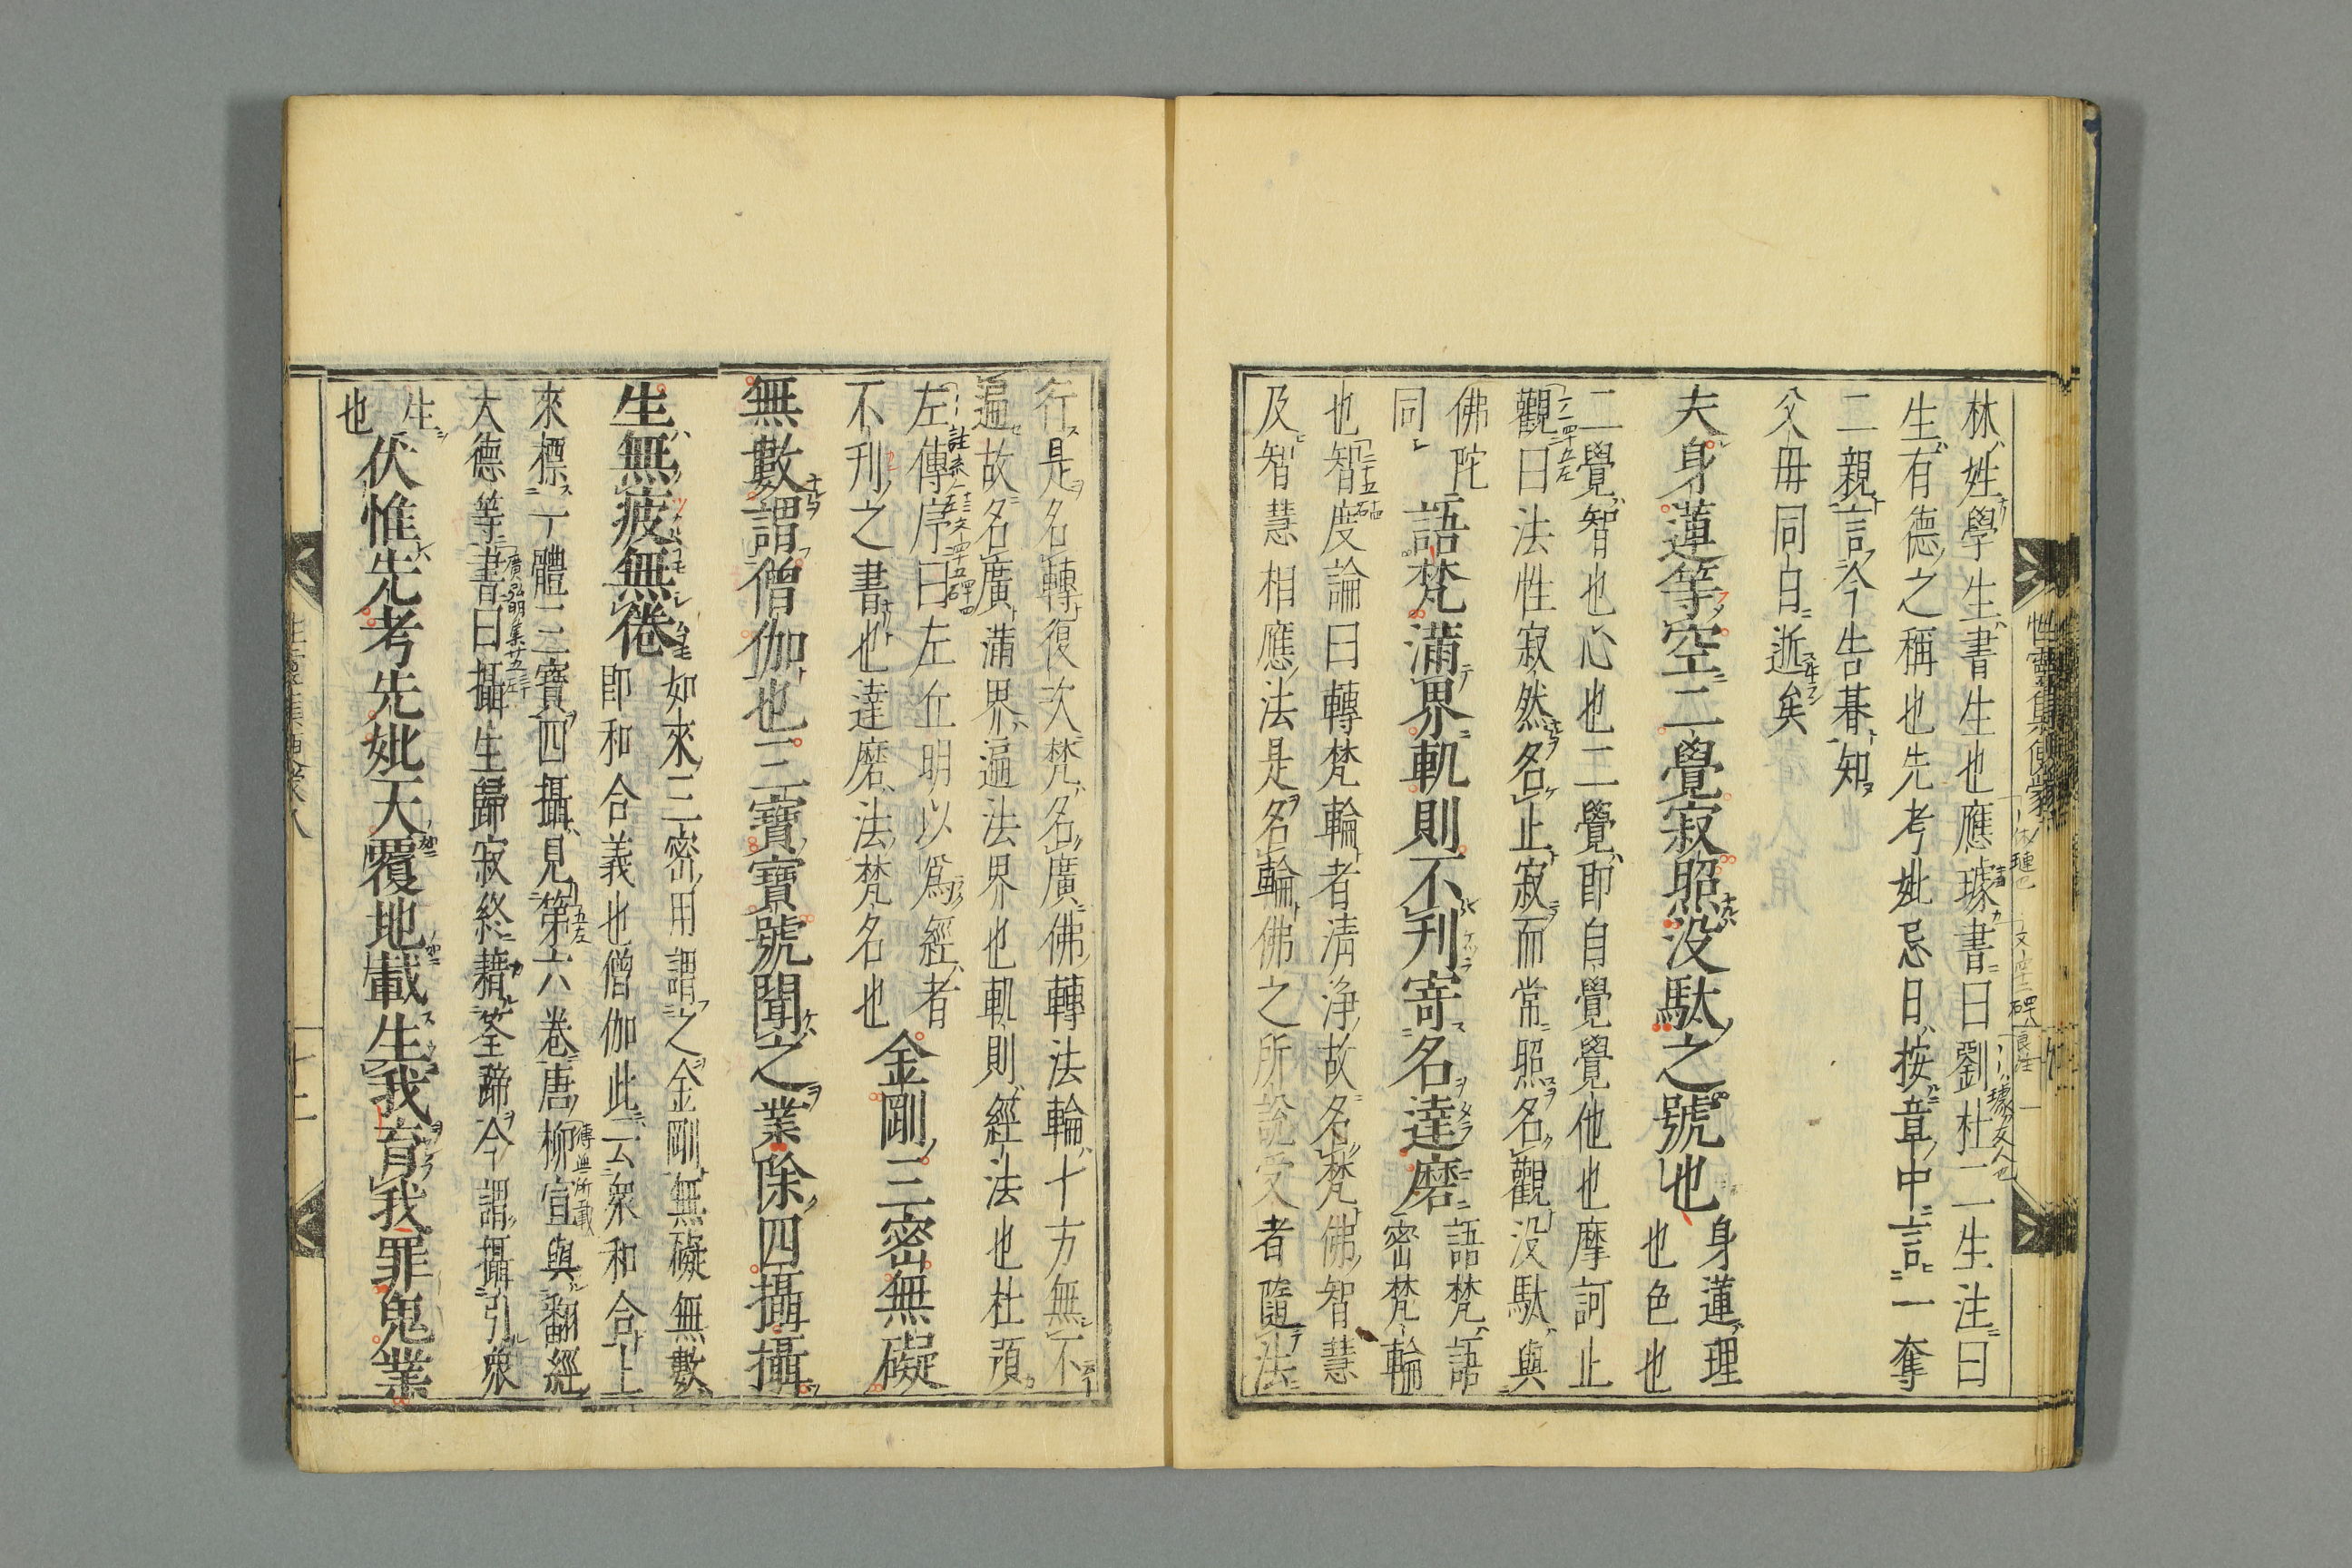 林姓學生書生也應璩書曰劉杜二生注曰
生有德之稱也先考妣忌日按章中言一奪
二親言今告碁知
父毋同白逝矣
夫身蓮等空二覺寂照没馱之號也
身蓮理
也色也
二覺智也心也二覺即自覺覺他也摩訶止
觀曰法性寂然名止寂而常照名觀没馱與
佛陀
同
語梵滿界軌則不刋寄名達磨
語梵語
密梵輪
也智度論曰轉梵輪者清淨故名梵佛智慧
及智慧相應法是名輪佛之所說受者隨法
行是名轉復次梵名廣佛轉法輪十方無不
遍故名廣滿界遍法界也軌則經法也杜預
左傳序曰左丘明以爲經者
不刋之書也達磨法梵名也
金剛三密無礙
無數謂僧伽也三寶寶號聞之業除四攝攝
生無疲無倦
如來三密用謂之金剛無礙無數
即和合義也僧伽此云衆和合上
來標一體三寶四攝見第六卷唐柳宣與翻經
大德等書曰攝生歸寂終藉筌蹄今謂攝引衆
生
也
伏惟先考先妣天覆地載生我育我罪鬼業
性靈集便蒙
十二